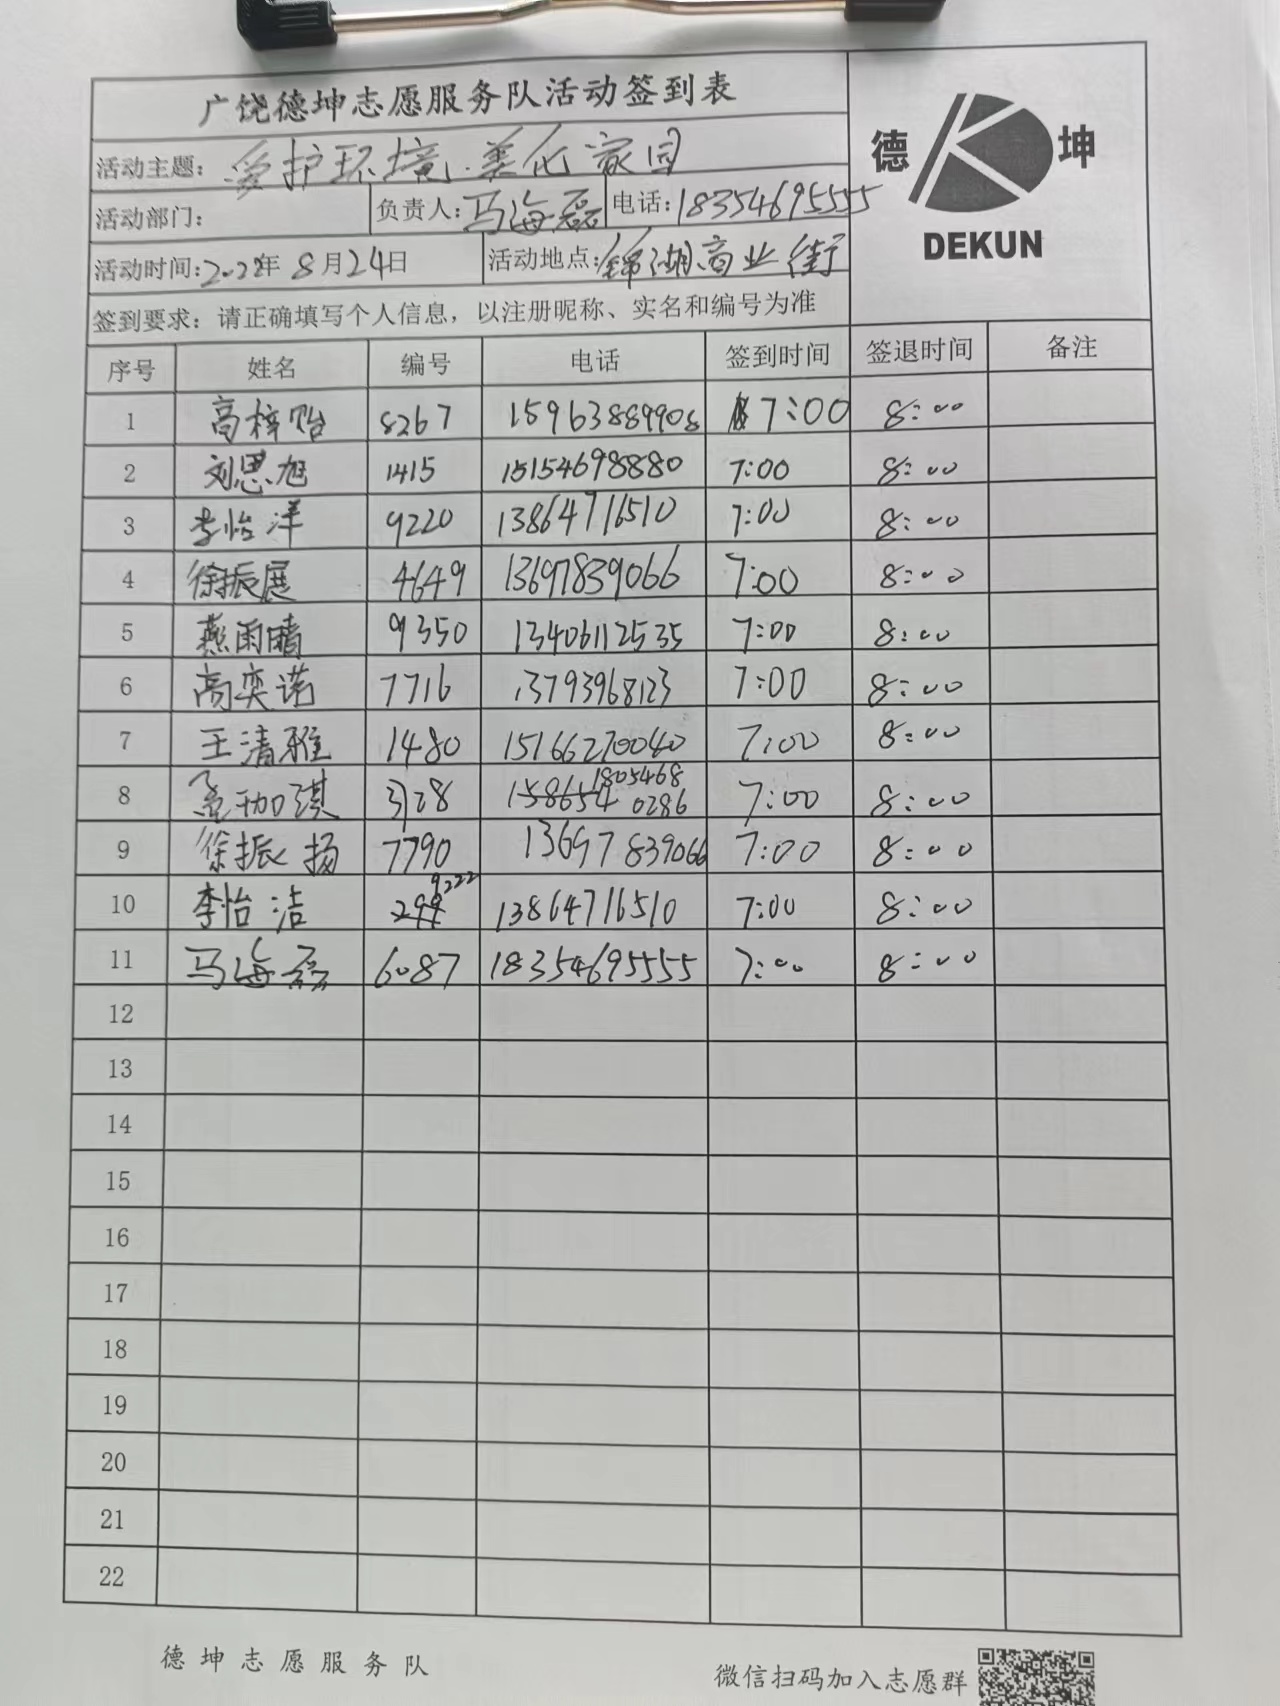 广饶德坤志愿服务队活动签到表
德 坤
DEKUN
活动主题：爱护环境.美化家园
活动部门： 负责人：马海磊 电话：18354695555
活动时间：2022年 8月24日 活动地点：锦湖商业街
签到要求：请正确填写个人信息，以注册昵称、实名和编号为准
序号 姓名 编号 电话 签到时间 签退时间 备注
1 高梓贻 8267 15963889908 7:00 8:00
2 刘思旭 1415 15154698880 7:00 8:00
3 李怡洋 9220 13864716510 7:00 8:00
4 徐振展 4649 13697839066 7:00 8:00
5 燕雨晴 9350 13406112535 7:00 8:00
6 高奕诺 7716 13793968123 7:00 8:00
7 王清雅 1480 15166270040 7:00 8:00
8 孟珈淇 3128 1805468 0286 7:00 8:00
9 徐振扬 7790 13697839066 7:00 8:00
10 李怡洁 9222 13864716510 7:00 8:00
11 马海磊 6087 18354695555 7:00 8:00
12
13
14
15
16
17
18
19
20
21
22
德坤志愿服务队 微信扫码加入志愿群